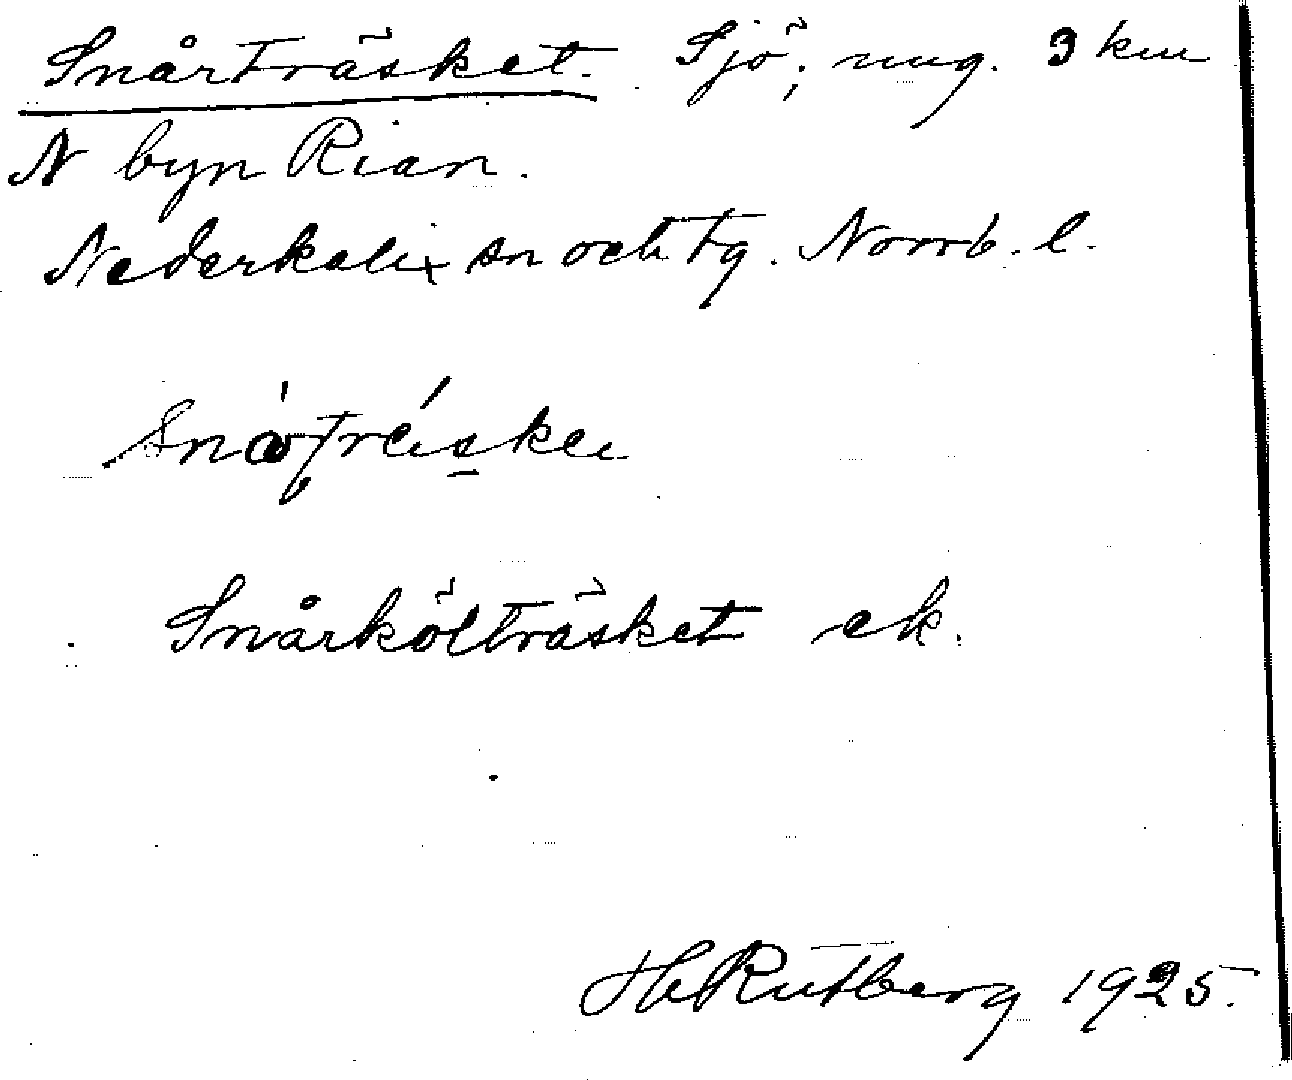 Snårträsket. Sjö; ung. 3 km
N byn Rian.
Nederkalix sn och tg. Norrb. l.
Snårkölträsket ek.
H Rutberg 1925.